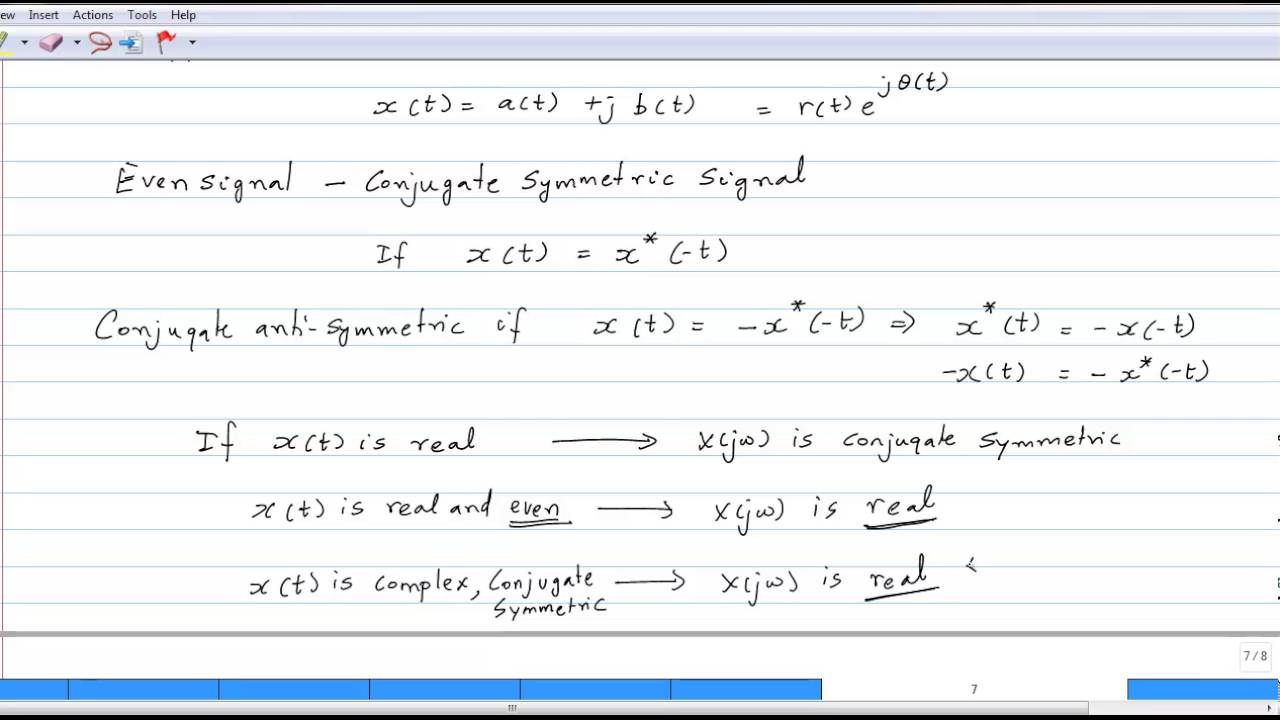 ew Insert Actions Tools Help
x(t) = a(t) + j b(t) = r(t) e^{jθ(t)}
Even signal – Conjugate symmetric signal
If x(t) = x*(-t)
Conjugate anti-symmetric if x(t) = -x*(-t) ⇒ x*(t) = -x(-t)
-x(t) = -x*(-t)
If x(t) is real ⟶ X(jω) is conjugate symmetric
x(t) is real and even ⟶ X(jω) is real
x(t) is complex, Conjugate symmetric ⟶ X(jω) is real
7 / 8
7